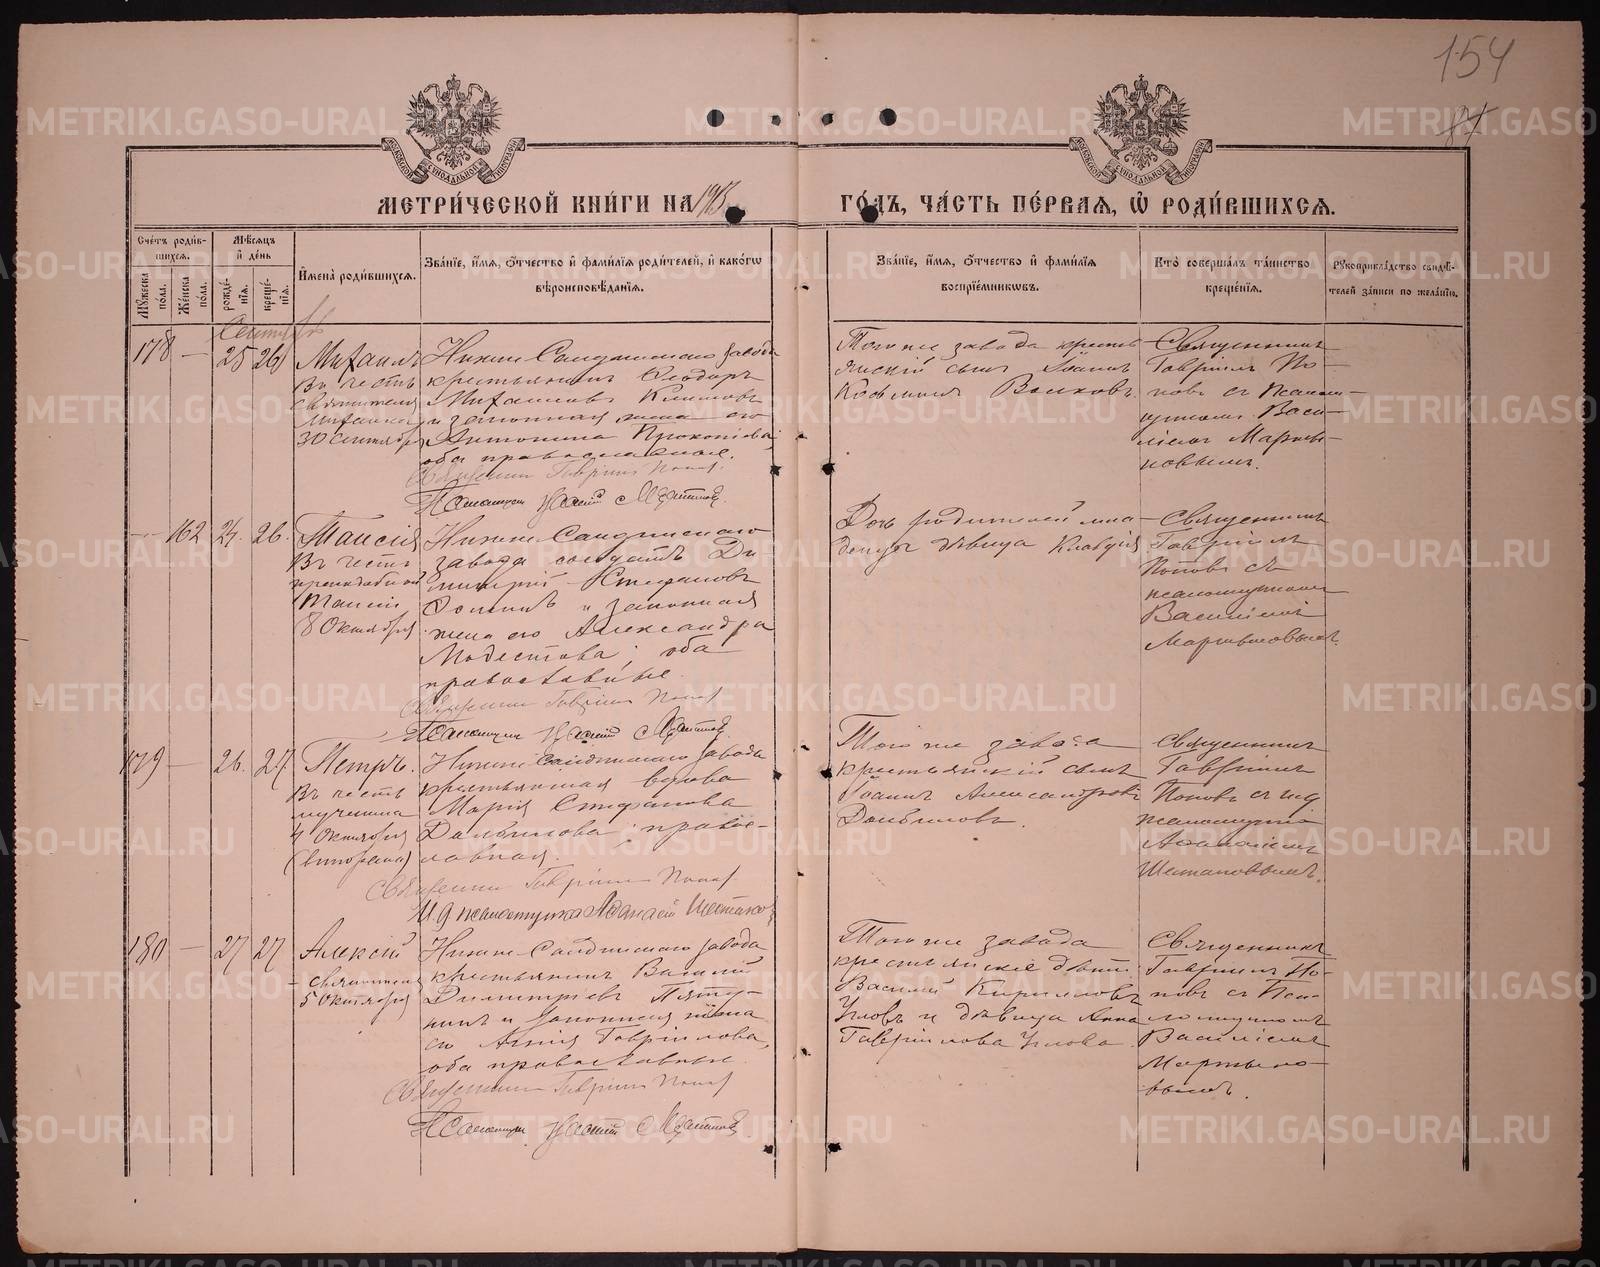 154
87
МЕТРИ́ЧЕСКОЙ КНИ́ГИ НА 1913
ГО́ДЪ, ЧА́СТЬ ПЕ́РВАЯ, Ѡ РОДИ́ВШИХСЯ.
Сче́тъ роди́в-
шихся.
Му́жеска по́ла.
Же́нска по́ла.
Мѣ́сяцъ и҆ де́нь
рожде́нїя.
креще́нїя.
И҆мена̀ роди́вшихся.
Зва́нїе, и҆́мя, ѻ҆́тчество и҆ фами́лїя роди́телей, и҆ како́гѡ
вѣроисповѣ́данїя.
Зва́нїе, и҆́мя, ѻ҆́тчество и҆ фами́лїя
воспрїе́мникѡвъ.
Кто̀ соверша́лъ та́инство
креще́нїя.
Рꙋкоприкла́дство свидѣ́-
телей за́писи по жела́нїю.
Сентябрь
178 — 25 26
Михаилъ
Въ честь
святителя
Михаила
30 Сентября
Нижне Салдинскаго завода
крестьянинъ Ѳеодоръ
Михаиловъ Климовъ
и законная жена его
Антонина Прокопіева,
оба православные.
Священникъ Гавріилъ Поповъ
Псаломщикъ Василій Мартыновъ
Того же завода кресть
янскій сынъ Іоаннъ
Косьминъ Волковъ.
Священникъ
Гавріилъ По-
повъ съ Псалом-
щикомъ Васи-
ліемъ Марты-
новымъ.
— 162 24. 26.
Таисія
Въ честь
преподобной
Таисіи
8 Октября
Нижне Салдинскаго
завода солдатъ Ди-
митрій Стефановъ
и законная
жена его Александра
Модестова, оба
православные.
Священникъ Гавріилъ Поповъ
Псаломщикъ Василій Мартыновъ
Дочь родителей мла-
денца дѣвица Клавдія
Священникъ
Гавріилъ
Поповъ съ
псаломщикомъ
Василіемъ
Мартыновымъ.
179 — 26. 27
Петръ.
Въ честь
мученика
4 Октября
Нижне Салдинскаго завода
крестьянская вдова
Марія Стефанова
Долбилова; правос-
лавная.
Священникъ Гавріилъ Поповъ
И. д. псаломщика Аѳанасій Шестаковъ
Того же завода
крестьянскій сынъ
Іоаннъ Александровъ
Долбиловъ.
Священникъ
Гавріилъ
Поповъ съ и.д.
псаломщика
Аѳанасіемъ
Шестаковымъ.
180 — 27 27
Алексій
святителя
5 Октября
Нижне Салдинскаго завода
крестьянинъ Василій
Димитріевъ Пяту-
нинъ и законная жена
его Гавріилова,
оба православные.
Священникъ Гавріилъ Поповъ
Псаломщикъ Василій Мартыновъ
Того же завода
крестьянскіе дѣти:
Василій Кирилловъ
Угловъ и дѣвица Анна
Гавріилова Углова.
Священникъ
Гавріилъ По-
повъ съ Пса-
ломщикомъ
Василіемъ
Мартыно-
вымъ.
METRIKI.GASO-URAL.RU